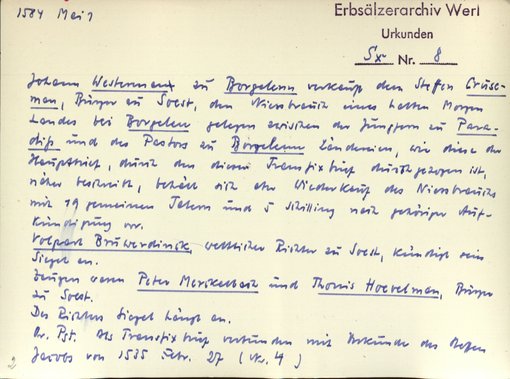 1584 Mai 1
Erbsälzerarchiv Werl
Urkunden
Sx Nr. 8
Johann Westermann zu Borgelenn verkauft dem Steffen Cruse-
man, Bürger zu Soest, den Niessbrauch eines halben Morgen
Landes bei Borgelen gelegen zwischen der Jungfern zu Para-
diss und des Pastors zu Borgelenn Ländereien, wie dies der
Hauptbrief, durch den dieser Transfixbrief durchgezogen ist,
näher beschreibt, behält sich aber Wiederkauf des Niessbrauchs
mit 19 gemeinen Talern und 5 Schilling nach gehöriger Auf-
kündigung vor.
Volpert Bruwerdinck, weltlicher Richter zu Soest, kündigt sein
Siegel an.
Zeugen waren Peter Merckelbach und Thonis Hoevelman, Bürger
zu Soest.
Des Richters Siegel hängt an.
Or. Pgt. Als Transfixbrief verbunden mit Urkunde des
Jacobs von 1535 Febr. 27 (Nr. 4)
2